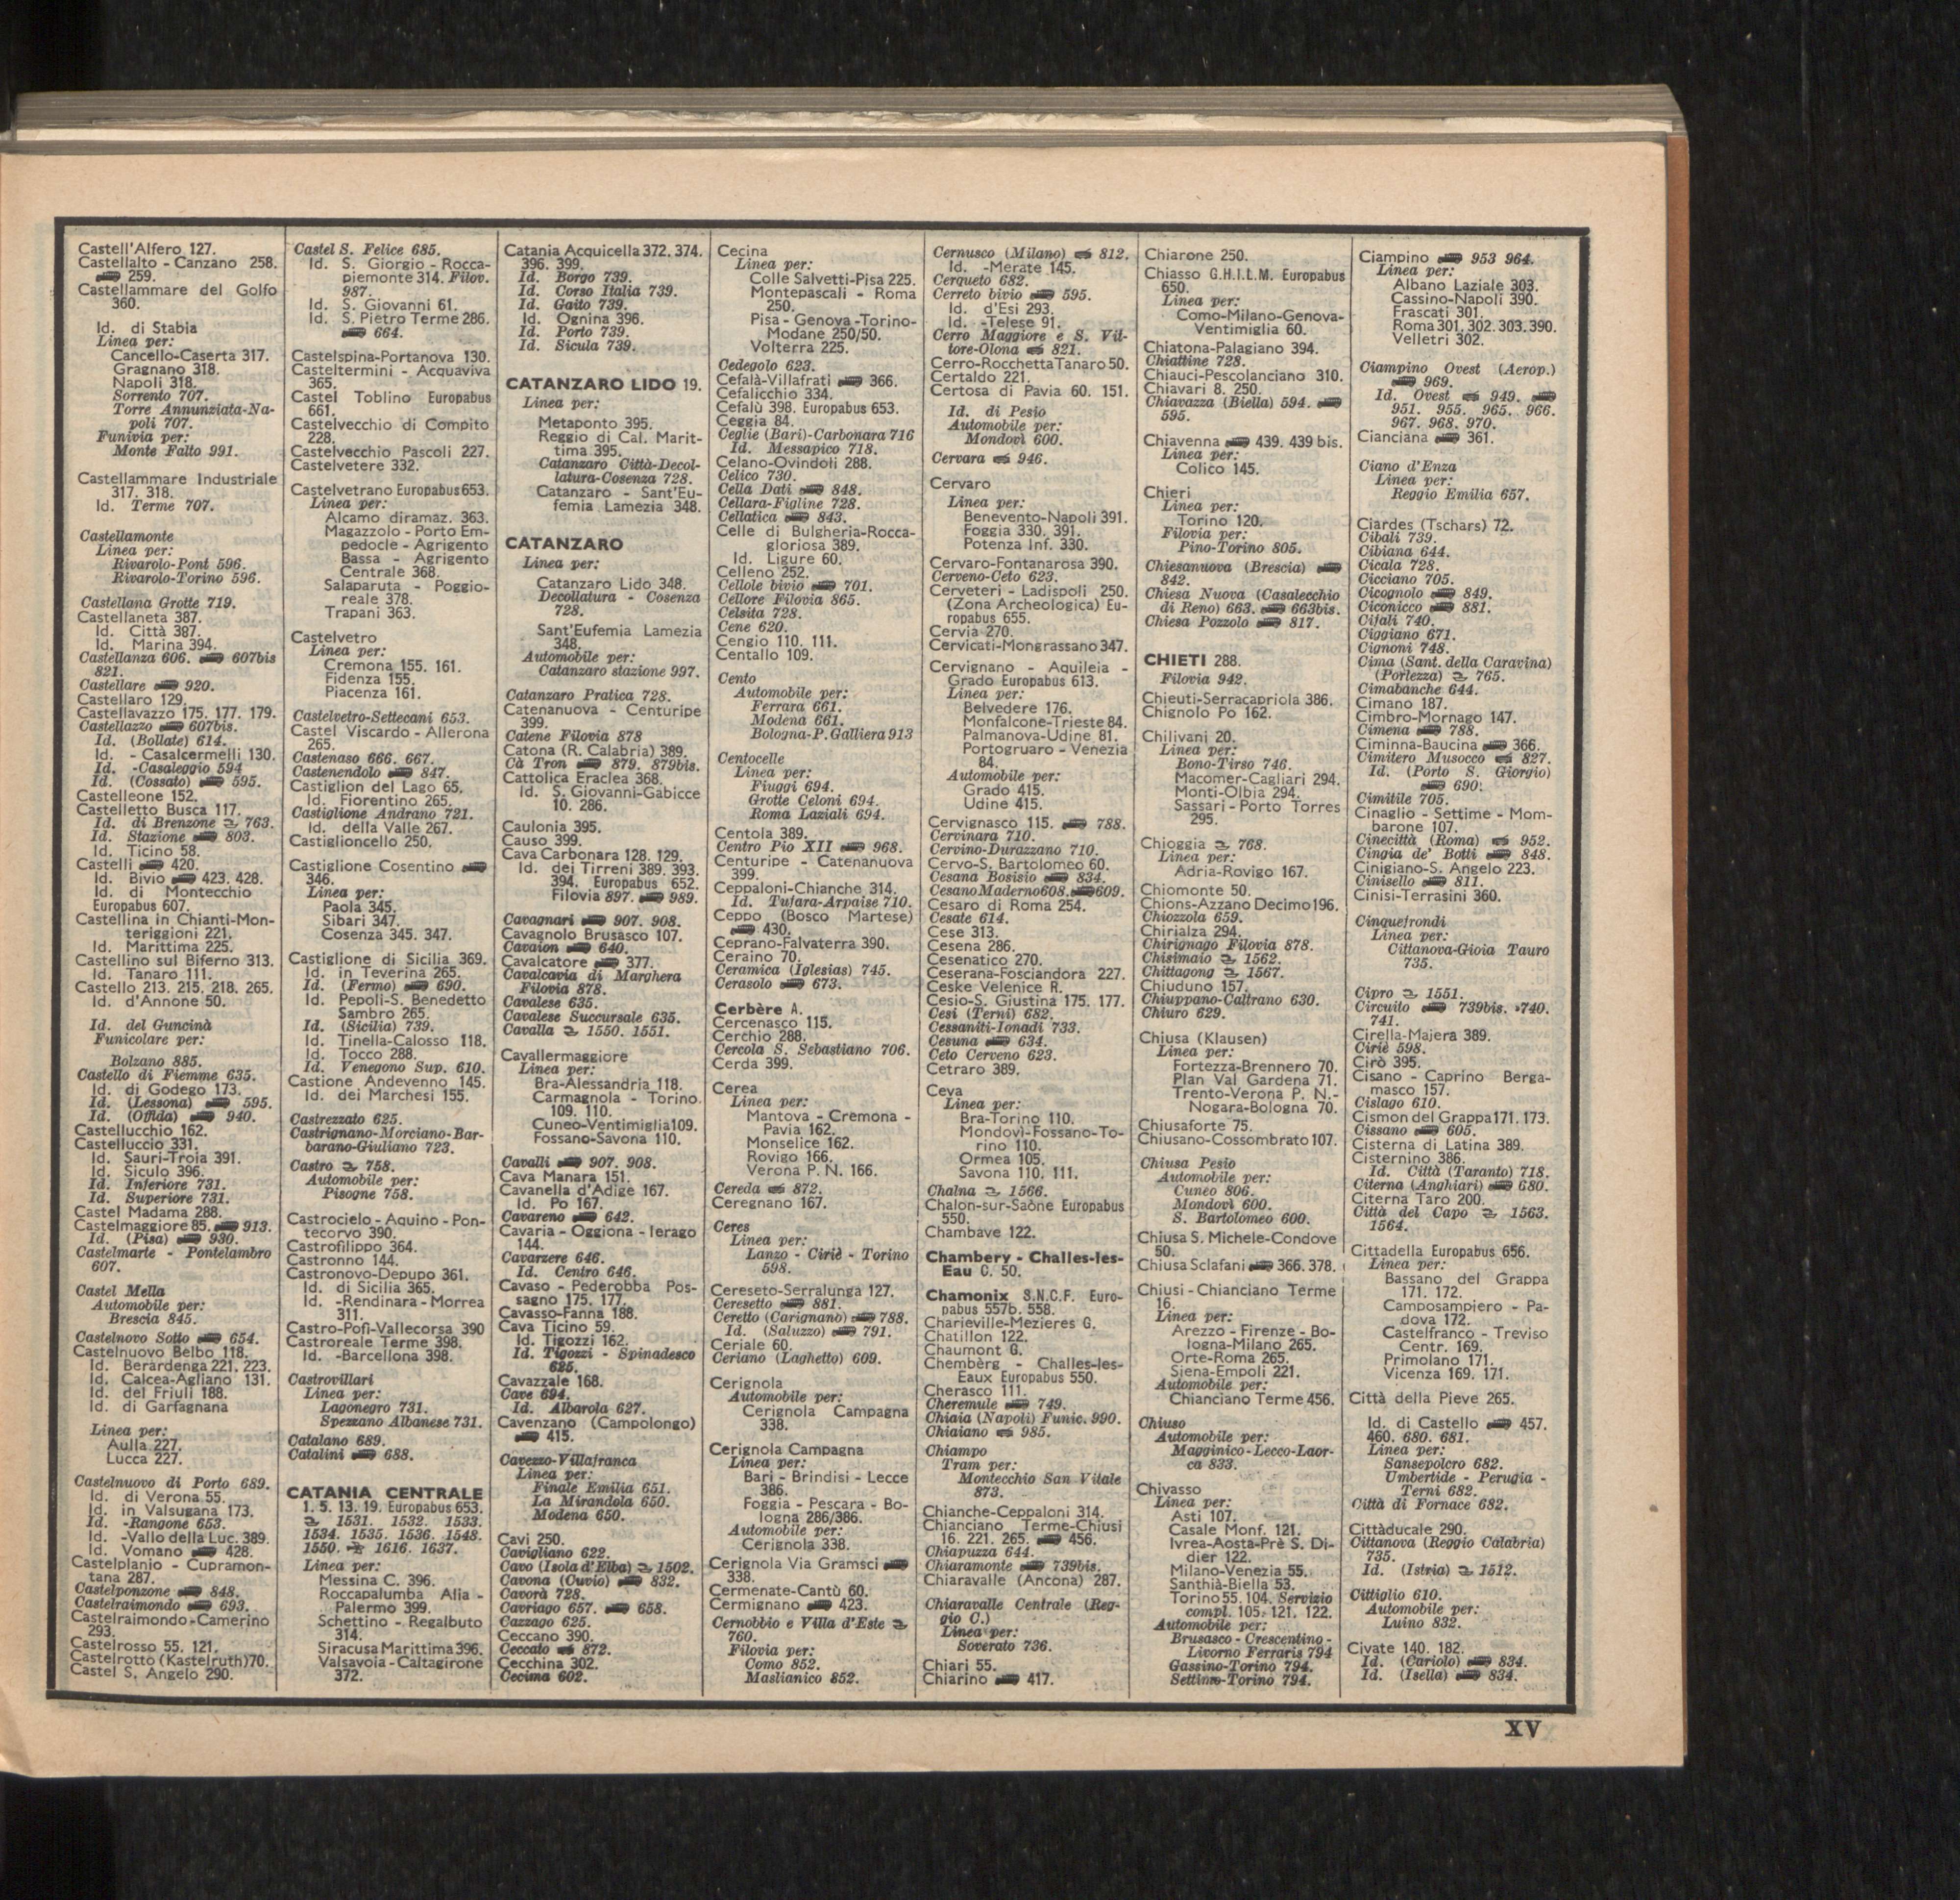 Castell'Alfero 127.
Castellalto - Canzano 258.
259.
Castellammare del Golfo
360.
Id. di Stabia
Linea per:
Cancello-Caserta 317.
Gragnano 318.
Napoli 318.
Sorrento 707.
Torre Annunziata-Na-
poli 707.
Funivia per:
Monte Falto 991.
Castellammare Industriale
317. 318.
Id. Terme 707.
Castellamonte
Linea per:
Rivarolo-Pont 596.
Rivarolo-Torino 596.
Castellana Grotte 719.
Castellaneta 387.
Id. Città 387.
Id. Marina 394.
Castellanza 606. 607bis
821.
Castellare 920.
Castellaro 129.
Castellavazzo 175. 177. 179.
Castellazzo 607bis.
Id. (Bollate) 614.
Id. - Casalcermelli 130.
Id. -Casaleggio 594
Id. (Cossato) 595.
Castelleone 152.
Castelletto Busca 117.
Id. di Brenzone 763.
Id. Stazione 803.
Id. Ticino 58.
Castelli 420.
Id. Bivio 423. 428.
Id. di Montecchio
Europabus 607.
Castellina in Chianti-Mon-
teriggioni 221.
Id. Marittima 225.
Castellino sul Biferno 313.
Id. Tanaro 111.
Castello 213. 215. 218. 265.
Id. d'Annone 50.
Id. del Guncinà
Funicolare per:
Bolzano 885.
Castello di Fiemme 635.
Id. di Godego 173.
Id. (Lessona) 595.
Id. (Offida) 940.
Castellucchio 162.
Castelluccio 331.
Id. Sauri-Troia 391.
Id. Siculo 396.
Id. Inferiore 731.
Id. Superiore 731.
Castel Madama 288.
Castelmaggiore 85. 913.
Id. (Pisa) 930.
Castelmarte - Pontelambro
607.
Castel Mella
Automobile per:
Brescia 845.
Castelnovo Sotto 654.
Castelnuovo Belbo 118.
Id. Berardenga 221. 223.
Id. Calcea-Agliano 131.
Id. del Friuli 188.
Id. di Garfagnana
Linea per:
Aulla 227.
Lucca 227.
Castelnuovo di Porto 689.
Id. di Verona 55.
Id. in Valsugana 173.
Id. -Rangone 653.
Id. -Vallo della Luc. 389.
Id. Vomano 428.
Castelplanio - Cupramon-
tana 287.
Castelponzone 848.
Castelraimondo 693.
Castelraimondo-Camerino
293.
Castelrosso 55. 121.
Castelrotto (Kastelruth) 70.
Castel S. Angelo 290.
Castel S. Felice 685.
Id. S. Giorgio - Rocca-
piemonte 314. Filov.
987.
Id. S. Giovanni 61.
Id. S. Pietro Terme 286.
664.
Castelspina-Portanova 130.
Casteltermini - Acquaviva
365.
Castel Toblino Europabus
661.
Castelvecchio di Compito
228.
Castelvecchio Pascoli 227.
Castelvetere 332.
Castelvetrano Europabus 653.
Linea per:
Alcamo diramaz. 363.
Magazzolo - Porto Em-
pedocle - Agrigento
Bassa - Agrigento
Centrale 368.
Salaparuta - Poggio-
reale 378.
Trapani 363.
Castelvetro
Linea per:
Cremona 155. 161.
Fidenza 155.
Piacenza 161.
Castelvetro-Settecani 653.
Castel Viscardo - Allerona
265.
Castenaso 666. 667.
Castenendolo 847.
Castiglion del Lago 65.
Id. Fiorentino 265.
Castiglione Andrano 721.
Id. della Valle 267.
Castiglioncello 250.
Castiglione Cosentino
346.
Linea per:
Paola 345.
Sibari 347.
Cosenza 345. 347.
Castiglione di Sicilia 369.
Id. in Teverina 265.
Id. (Fermo) 690.
Id. Pepoli-S. Benedetto
Sambro 265.
Id. (Sicilia) 739.
Id. Tinella-Calosso 118.
Id. Tocco 288.
Id. Venegono Sup. 610.
Castione Andevenno 145.
Id. dei Marchesi 155.
Castrezzato 625.
Castrignano-Morciano-Bar-
barano-Giuliano 723.
Castro 758.
Automobile per:
Pisogne 758.
Castrocielo - Aquino - Pon-
tecorvo 390.
Castrofilippo 364.
Castronno 144.
Castronovo-Depupo 361.
Id. di Sicilia 365.
Id. -Rendinara - Morrea
311.
Castro-Pofi-Vallecorsa 390
Castroreale Terme 398.
Id. -Barcellona 398.
Castrovillari
Linea per:
Lagonegro 731.
Spezzano Albanese 731.
Catalano 689.
Catalini 688.
CATANIA CENTRALE
1. 5. 13. 19. Europabus 653.
1531. 1532. 1533.
1534. 1535. 1536. 1548.
1550. 1616. 1637.
Linea per:
Messina C. 396.
Roccapalumba Alia -
Palermo 399.
Schettino - Regalbuto
314.
Siracusa Marittima 396.
Valsavoia - Caltagirone
372.
Catania Acquicella 372. 374.
396. 399.
Id. Borgo 739.
Id. Corso Italia 739.
Id. Gaito 739.
Id. Ognina 396.
Id. Porto 739.
Id. Sicula 739.
CATANZARO LIDO 19.
Linea per:
Metaponto 395.
Reggio di Cal. Marit-
tima 395.
Catanzaro Città-Decol-
latura-Cosenza 728.
Catanzaro - Sant'Eu-
femia Lamezia 348.
CATANZARO
Linea per:
Catanzaro Lido 348.
Decollatura - Cosenza
728.
Sant'Eufemia Lamezia
348.
Automobile per:
Catanzaro stazione 997.
Catanzaro Pratica 728.
Catenanuova - Centuripe
399.
Catene Filovia 878
Catona (R. Calabria) 389.
Cà Tron 879. 879bis.
Cattolica Eraclea 368.
Id. S. Giovanni-Gabicce
10. 286.
Caulonia 395.
Causo 399.
Cava Carbonara 128. 129.
Id. dei Tirreni 389. 393.
394. Europabus 652.
Filovia 897. 989.
Cavagnari 907. 908.
Cavagnolo Brusasco 107.
Cavaion 640.
Cavalcatore 377.
Cavalcavia di Marghera
Filovia 878.
Cavalese 635.
Cavalese Succursale 635.
Cavalla 1550. 1551.
Cavallermaggiore
Linea per:
Bra-Alessandria 118.
Carmagnola - Torino
109. 110.
Cuneo-Ventimiglia 109.
Fossano-Savona 110.
Cavalli 907. 908.
Cava Manara 151.
Cavanella d'Adige 167.
Id. Po 167.
Cavareno 642.
Cavaria - Oggiona - Ierago
144.
Cavarzere 646.
Id. Centro 646.
Cavaso - Pederobba Pos-
sagno 175. 177.
Cavasso-Fanna 188.
Cava Ticino 59.
Id. Tigozzi 162.
Id. Tigozzi - Spinadesco
625.
Cavazzale 168.
Cave 694.
Id. Albarola 627.
Cavenzano (Campolongo)
415.
Cavezzo-Villafranca
Linea per:
Finale Emilia 651.
La Mirandola 650.
Modena 650.
Cavi 250.
Cavigliano 622.
Cavo (Isola d'Elba) 1502.
Cavona (Cuvio) 832.
Cavorà 728.
Cavriago 657. 658.
Cazzago 625.
Ceccano 390.
Ceccato 872.
Cecchina 302.
Cecima 602.
Cecina
Linea per:
Colle Salvetti-Pisa 225.
Montepascali - Roma
250.
Pisa - Genova -Torino-
Modane 250/50.
Volterra 225.
Cedegolo 623.
Cefalà-Villafrati 366.
Cefalicchio 334.
Cefalù 398. Europabus 653.
Ceggia 84.
Ceglie (Bari)-Carbonara 716
Id. Messapico 718.
Celano-Ovindoli 288.
Celico 730.
Cella Dati 848.
Cellara-Figline 728.
Cellatica 843.
Celle di Bulgheria-Rocca-
gloriosa 389.
Id. Ligure 60.
Celleno 252.
Cellole bivio 701.
Cellore Filovia 865.
Celsita 728.
Cene 620.
Cengio 110. 111.
Centallo 109.
Cento
Automobile per:
Ferrara 661.
Modena 661.
Bologna-P. Galliera 913
Centocelle
Linea per:
Fiuggi 694.
Grotte Celoni 694.
Roma Laziali 694.
Centola 389.
Centro Pio XII 968.
Centuripe - Catenanuova
399.
Ceppaloni-Chianche 314.
Id. Tufara-Arpaise 710.
Ceppo (Bosco Martese)
430.
Ceprano-Falvaterra 390.
Ceraino 70.
Ceramica (Iglesias) 745.
Cerasolo 673.
Cerbère A.
Cercenasco 115.
Cerchio 288.
Cercola S. Sebastiano 706.
Cerda 399.
Cerea
Linea per:
Mantova - Cremona -
Pavia 162.
Monselice 162.
Rovigo 166.
Verona P. N. 166.
Cereda 872.
Ceregnano 167.
Ceres
Linea per:
Lanzo - Ciriè - Torino
598.
Cereseto-Serralunga 127.
Ceresetto 881.
Ceretto (Carignano) 788.
Id. (Saluzzo) 791.
Ceriale 60.
Ceriano (Laghetto) 609.
Cerignola
Automobile per:
Cerignola Campagna
338.
Cerignola Campagna
Linea per:
Bari - Brindisi - Lecce
386.
Foggia - Pescara - Bo-
logna 286/386.
Automobile per:
Cerignola 338.
Cerignola Via Gramsci
338.
Cermenate-Cantù 60.
Cermignano 423.
Cernobbio e Villa d'Este
760.
Filovia per:
Como 852.
Maslianico 852.
Cernusco (Milano) 812.
Id. -Merate 145.
Cerqueto 682.
Cerreto bivio 595.
Id. d'Esi 293.
Id. -Telese 91.
Cerro Maggiore e S. Vit-
tore-Olona 821.
Cerro-Rocchetta Tanaro 50.
Certaldo 221.
Certosa di Pavia 60. 151.
Id. di Pesio
Automobile per:
Mondovì 600.
Cervara 946.
Cervaro
Linea per:
Benevento-Napoli 391.
Foggia 330. 391.
Potenza Inf. 330.
Cervaro-Fontanarosa 390.
Cerveno-Ceto 623.
Cerveteri - Ladispoli 250.
(Zona Archeologica) Eu-
ropabus 655.
Cervia 270.
Cervicati-Mongrassano 347.
Cervignano - Aquileia -
Grado Europabus 613.
Linea per:
Belvedere 176.
Monfalcone-Trieste 84.
Palmanova-Udine 81.
Portogruaro - Venezia
84.
Automobile per:
Grado 415.
Udine 415.
Cervignasco 115. 788.
Cervinara 710.
Cervino-Durazzano 710.
Cervo-S. Bartolomeo 60.
Cesana Bosisio 834.
Cesano Maderno 608. 609.
Cesaro di Roma 254.
Cesate 614.
Cese 313.
Cesena 286.
Cesenatico 270.
Ceserana-Fosciandora 227.
Ceske Velenice R.
Cesio-S. Giustina 175. 177.
Cesi (Terni) 682.
Cessaniti-Ionadi 733.
Cesuna 634.
Ceto Cerveno 623.
Cetraro 389.
Ceva
Linea per:
Bra-Torino 110.
Mondovì-Fossano-To-
rino 110.
Ormea 105.
Savona 110. 111.
Chalna 1566.
Chalon-sur-Saône Europabus
550.
Chambave 122.
Chambery - Challes-les-
Eau C. 50.
Chamonix S.N.C.F. Euro-
pabus 557b. 558.
Charieville-Mezieres G.
Chatillon 122.
Chaumont G.
Chembèrg - Challes-les-
Eaux Europabus 550.
Cherasco 111.
Cheremule 749.
Chiaia (Napoli) Funic. 990.
Chiaiano 985.
Chiampo
Tram per:
Montecchio San Vitale
873.
Chianche-Ceppaloni 314.
Chianciano Terme-Chiusi
16. 221. 265. 456.
Chiapuzza 644.
Chiaramonte 739bis.
Chiaravalle (Ancona) 287.
Chiaravalle Centrale (Reg-
gio C.)
Linea per:
Soverato 736.
Chiari 55.
Chiarino 417.
Chiarone 250.
Chiasso G.H.I.L.M. Europabus
650.
Linea per:
Como-Milano-Genova-
Ventimiglia 60.
Chiatona-Palagiano 394.
Chiattine 728.
Chiauci-Pescolanciano 310.
Chiavari 8. 250.
Chiavazza (Biella) 594.
595.
Chiavenna 439. 439 bis.
Linea per:
Colico 145.
Chieri
Linea per:
Torino 120.
Filovia per:
Pino-Torino 805.
Chiesanuova (Brescia)
842.
Chiesa Nuova (Casalecchio
di Reno) 663. 663bis.
Chiesa Pozzolo 817.
CHIETI 288.
Filovia 942.
Chieuti-Serracapriola 386.
Chignolo Po 162.
Chilivani 20.
Linea per:
Bono-Tirso 746.
Macomer-Cagliari 294.
Monti-Olbia 294.
Sassari - Porto Torres
295.
Chioggia 768.
Linea per:
Adria-Rovigo 167.
Chiomonte 50.
Chions-Azzano Decimo 196.
Chiozzola 659.
Chirialza 294.
Chirignago Filovia 878.
Chisimaio 1562.
Chittagong 1567.
Chiuduno 157.
Chiuppano-Caltrano 630.
Chiuro 629.
Chiusa (Klausen)
Linea per:
Fortezza-Brennero 70.
Plan Val Gardena 71.
Trento-Verona P. N.-
Nogara-Bologna 70.
Chiusaforte 75.
Chiusano-Cossombrato 107.
Chiusa Pesio
Automobile per:
Cuneo 806.
Mondovì 600.
S. Bartolomeo 600.
Chiusa S. Michele-Condove
50.
Chiusa Sclafani 366. 378.
Chiusi - Chianciano Terme
16.
Linea per:
Arezzo - Firenze - Bo-
logna-Milano 265.
Orte-Roma 265.
Siena-Empoli 221.
Automobile per:
Chianciano Terme 456.
Chiuso
Automobile per:
Magginico-Lecco-Laor-
ca 833.
Chivasso
Linea per:
Asti 107.
Casale Monf. 121.
Ivrea-Aosta-Prè S. Di-
dier 122.
Milano-Venezia 55.
Santhià-Biella 53.
Torino 55. 104. Servizio
compl. 105. 121. 122.
Automobile per:
Brusasco - Crescentino -
Livorno Ferraris 794
Gassino-Torino 794.
Settimo-Torino 794.
Ciampino 953 964.
Linea per:
Albano Laziale 303.
Cassino-Napoli 390.
Frascati 301.
Roma 301. 302. 303. 390.
Velletri 302.
Ciampino Ovest (Aerop.)
969.
Id. Ovest 949.
951. 955. 965. 966.
967. 968. 970.
Cianciana 361.
Ciano d'Enza
Linea per:
Reggio Emilia 657.
Ciardes (Tschars) 72.
Cibali 739.
Cibiana 644.
Cicala 728.
Cicciano 705.
Cicognolo 849.
Ciconicco 881.
Cifali 740.
Ciggiano 671.
Cignoni 748.
Cima (Sant. della Caravina)
(Porlezza) 765.
Cimabanche 644.
Cimano 187.
Cimbro-Mornago 147.
Cimena 788.
Ciminna-Baucina 366.
Cimitero Musocco 827.
Id. (Porto S. Giorgio)
690.
Cimitile 705.
Cinaglio - Settime - Mom-
barone 107.
Cinecittà (Roma) 952.
Cingia de' Botti 848.
Cinigiano-S. Angelo 223.
Cinisello 811.
Cinisi-Terrasini 360.
Cinquefrondi
Linea per:
Cittanova-Gioia Tauro
735.
Cipro 1551.
Circuito 739bis. 740.
741.
Cirella-Majera 389.
Ciriè 598.
Cirò 395.
Cisano - Caprino Berga-
masco 157.
Cislago 610.
Cismon del Grappa 171. 173.
Cissano 605.
Cisterna di Latina 389.
Cisternino 386.
Id. Città (Taranto) 718.
Citerna (Anghiari) 680.
Citerna Taro 200.
Città del Capo 1563.
1564.
Cittadella Europabus 656.
Linea per:
Bassano del Grappa
171. 172.
Camposampiero - Pa-
dova 172.
Castelfranco - Treviso
Centr. 169.
Primolano 171.
Vicenza 169. 171.
Città della Pieve 265.
Id. di Castello 457.
460. 680. 681.
Linea per:
Sansepolcro 682.
Umbertide - Perugia -
Terni 682.
Città di Fornace 682.
Cittàducale 290.
Cittanova (Reggio Calabria)
735.
Id. (Istria) 1512.
Cittiglio 610.
Automobile per:
Luino 832.
Civate 140. 182.
Id. (Cariolo) 834.
Id. (Isella) 834.
XV